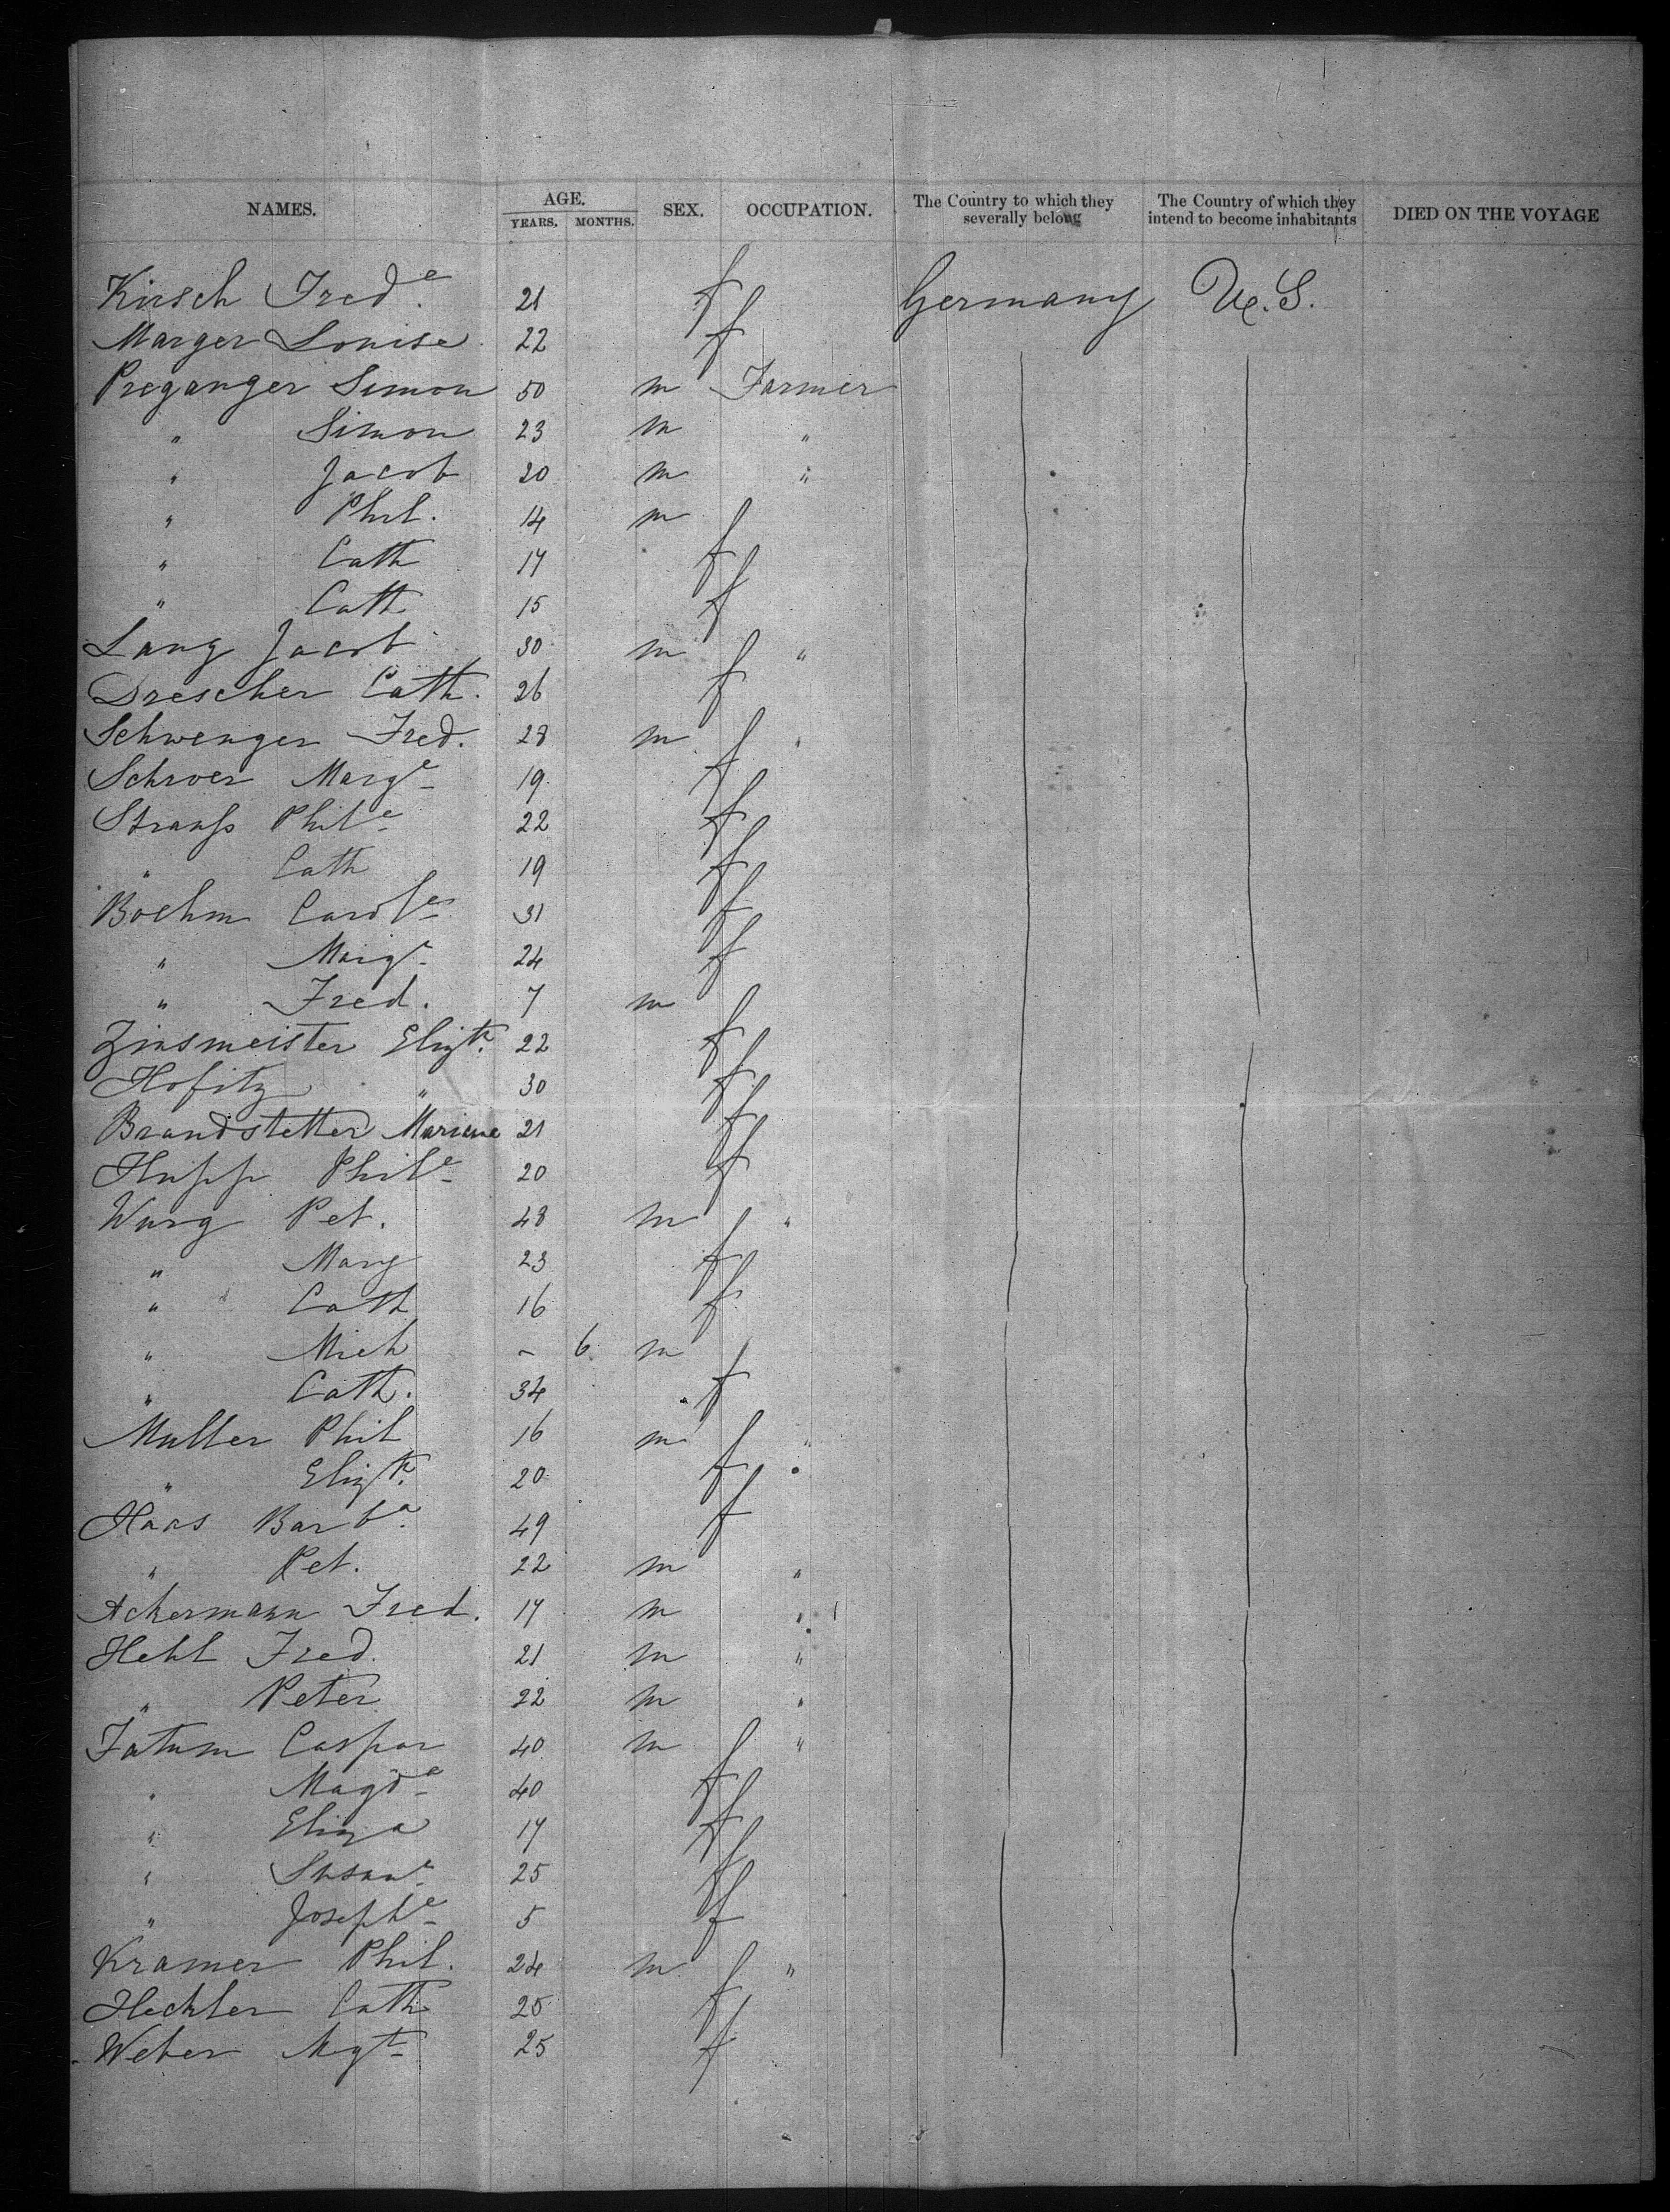 NAMES. AGE. YEARS. MONTHS. SEX. OCCUPATION. The Country to which they severally belong The Country of which they intend to become inhabitants DIED ON THE VOYAGE
Kirsch Fredᵉ. 21 f Germany U.S.
Marger Louise 22 f
Preganger Simon 50 m Farmer
" Simon 23 m "
" Jacob 20 m "
" Phil. 14 m
" Cath 17 f
" Cath 15 f
Lang Jacob 30 m "
Drescher Cath. 26 f
Schwenger Fred. 28 m "
Schroer Margᵉ 19 f
Strauſs Philᵉ 22 f
" Cath 19 f
Boehm Carolᵉ 31 f
" Margᵉ 24 f
" Fred. 7 m
Zinsmeister Elizth. 22 f
Hofitz " 30 f
Brandstetter Mariane 21 f
Hupp Philᵉ 20 f
Wurg Pet. 48 m "
" Marg 23 f
" Cath 16 f
" Mich - 6 m
" Cath. 34 f
Muller Phil 16 m "
" Elizth. 20 f
Haas Barbᵃ. 49 f
" Pet. 22 m "
Ackermann Fred. 17 m "
Hehl Fred. 21 m "
" Peter 22 m "
Fatum Caspar 40 m "
" Magdᵃ 40 f
" Eliza 17 f
" Susanᵉ 25 f
" Josephᵉ 5 f
Kramer Phil. 24 m "
Hechler Cath 25 f
Weber Mgt 25 f